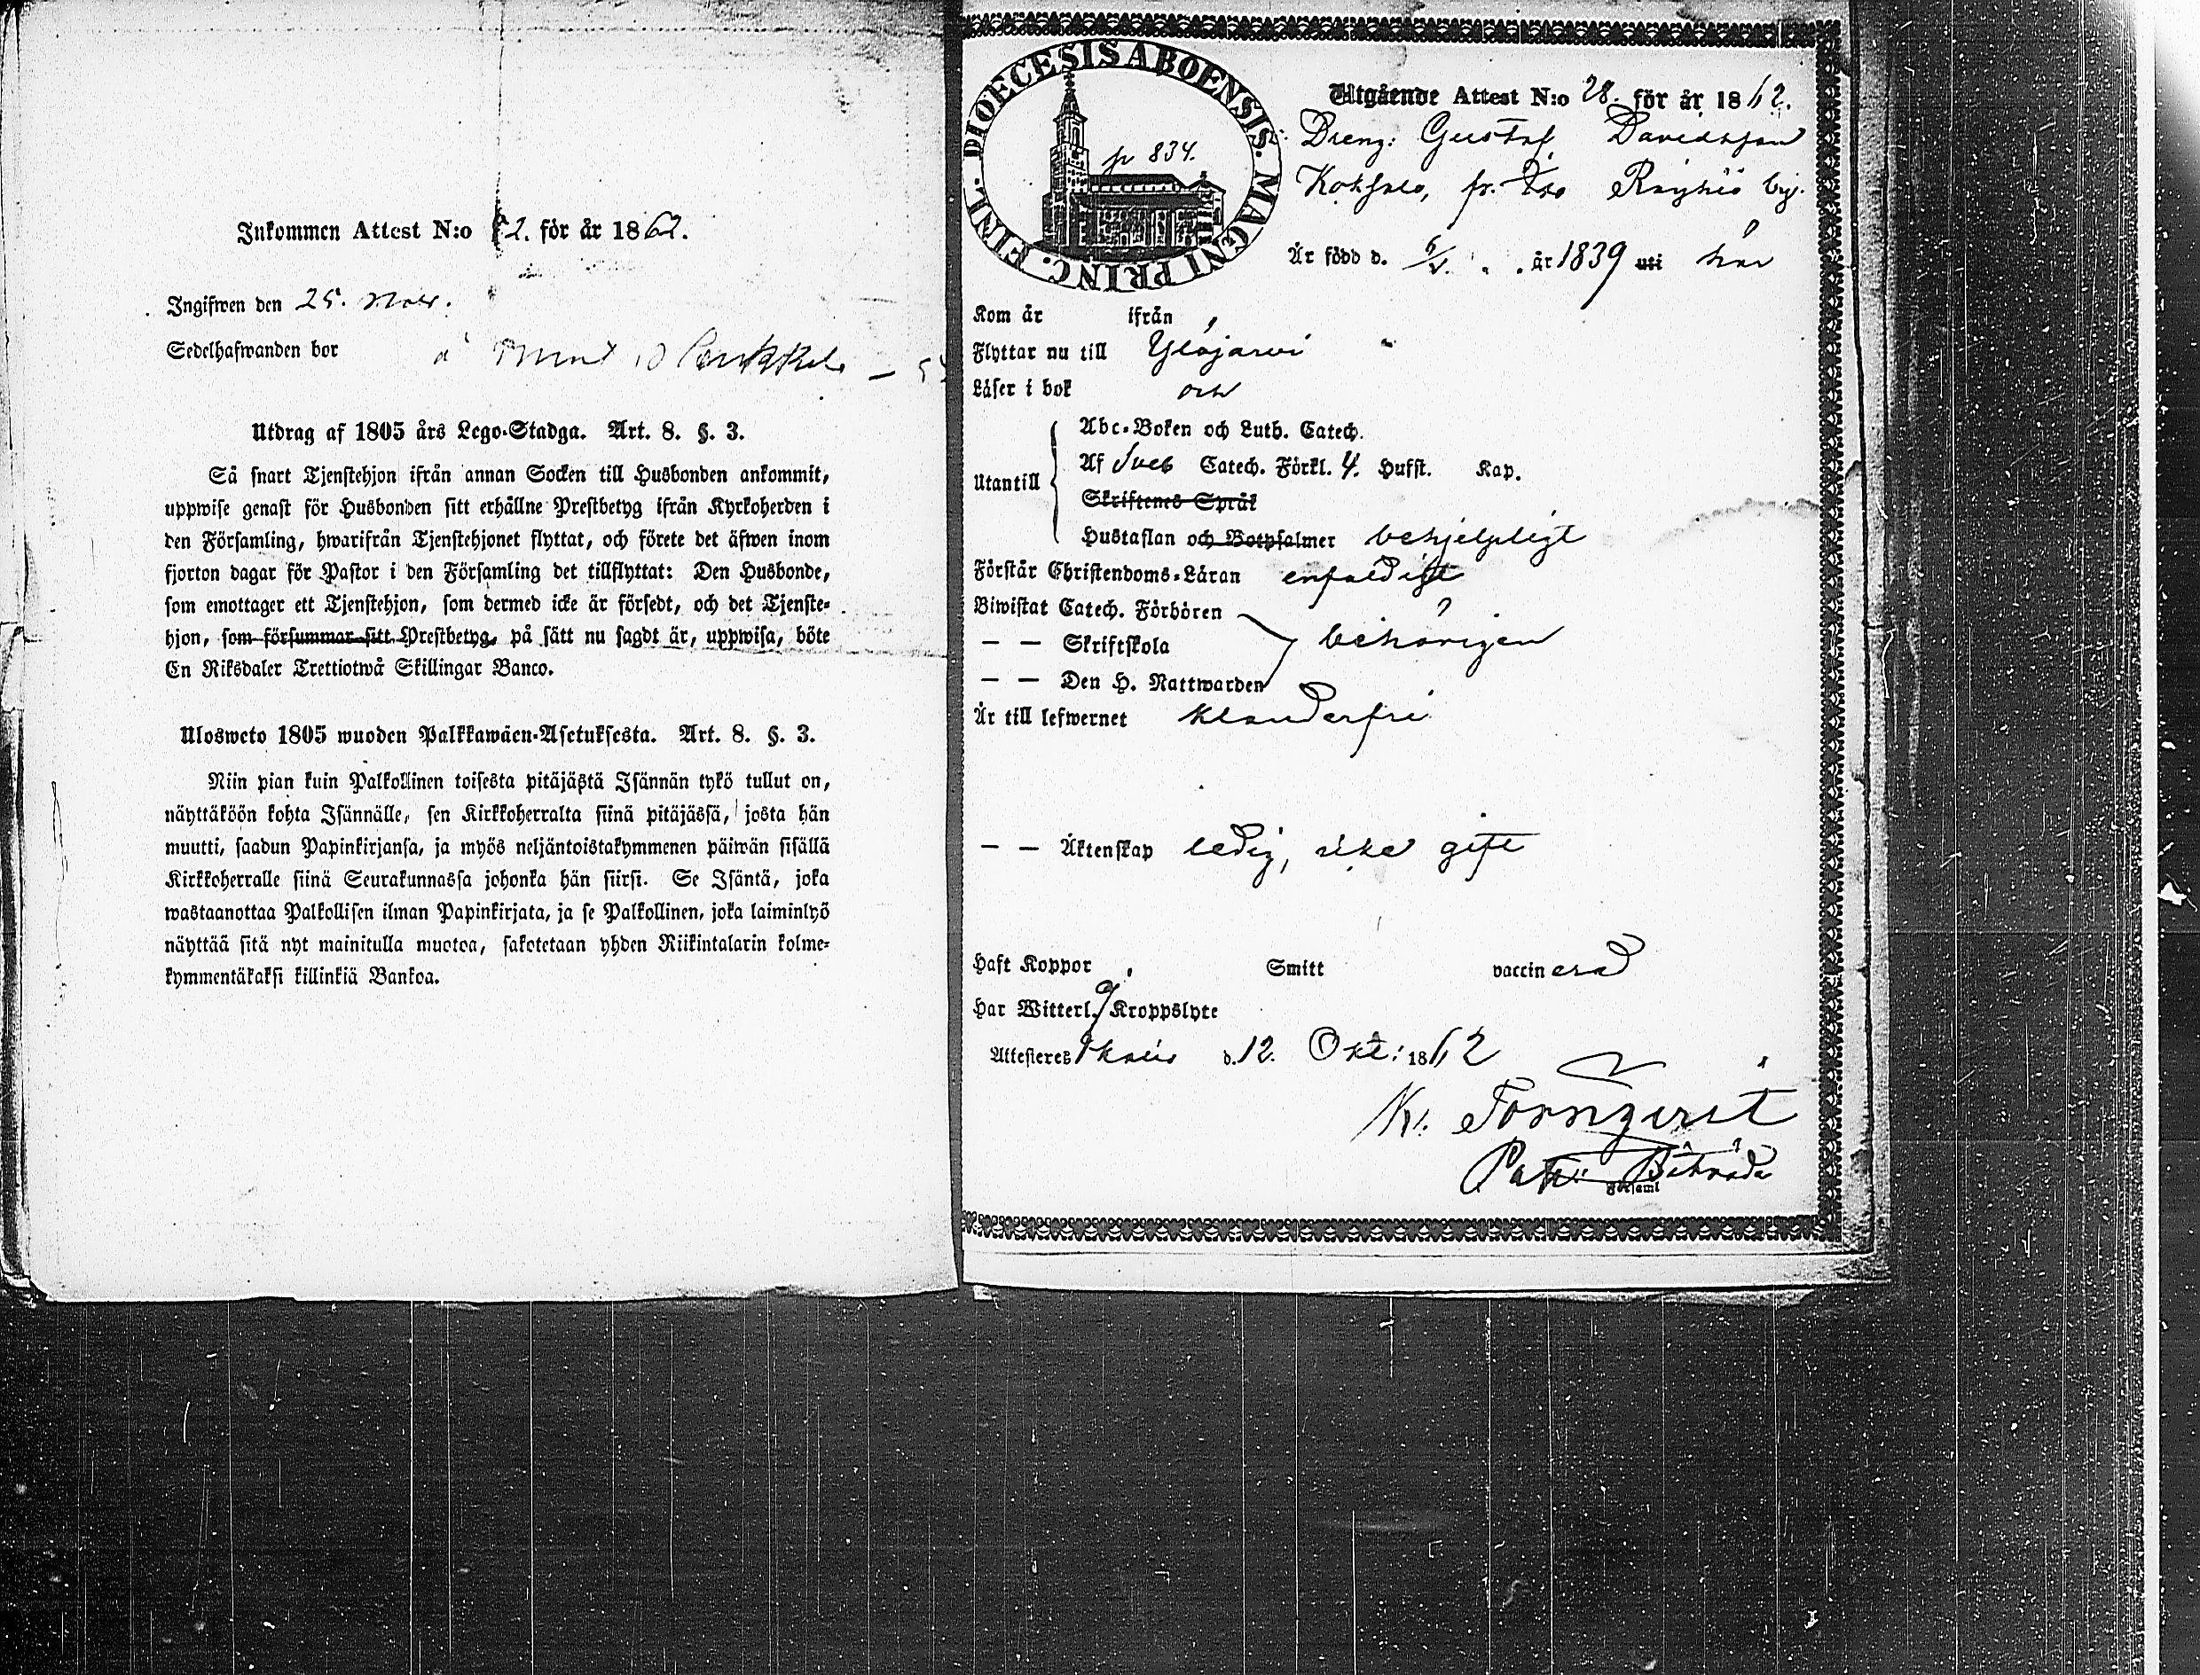 Inkommen Attest N:o 2. för år 1862.
Ingifwen den 25. Nov.
Sedelhafwanden bor å
Utdrag af 1805 års Lego-Stadga. Art. 8. §. 3.
Så snart Tjenstehjon ifrån annan Socken till Husbonden ankommit,
uppwise genast för Husbonden sitt erhållne Prestbetyg ifrån Kyrkoherden i
den Församling, hwarifrån Tjenstehjonet flyttat, och förete det äfwen inom
fjorton dagar för Pastor i den Församling det tillflyttat: Den Husbonde,
som emottager ett Tjenstehjon, som dermed icke är försedt, och det Tjenste-
hjon, som försummar sitt Prestbetyg, på sätt nu sagdt är, uppwisa, böte
En Riksdaler Trettiotwå Skillingar Banco.
Ulosweto 1805 wuoden Palkkawäen-Asetuksesta. Art. 8. §. 3.
Niin pian kuin Palkollinen toisesta pitäjästä Isännän tykö tullut on,
näyttäköön kohta Isännälle, sen Kirkkoherralta siinä pitäjässä, josta hän
muutti, saadun Papinkirjansa, ja myös neljäntoistakymmenen päiwän sisällä
Kirkkoherralle siinä Seurakunnassa johonka hän siirsi. Se Isäntä, joka
wastaanottaa Palkollisen ilman Papinkirjata, ja se Palkollinen, joka laiminlyö
näyttää sitä nyt mainitulla muotoa, sakotetaan yhden Riikintalarin kolme-
kymmentäkaksi killinkiä Bankoa.
DIOECESIS ABOENSIS. MAGNI PRINC. FINL.
p 834.
Utgående Attest N:o 28. för år 1862.
Dreng: Gustaf Davidsson
fr. Iso Röyhiö by.
Är född d. 6/5. år 1839 uti här
Kom år ifrån
Flyttar nu till Ylöjärvi
Läser i bok och
Utantill
Abc-Boken och Luth. Catech.
Af Sveb Catech. Förkl. 4. Hufst. Kap.
Skriftenes Språk
Hustaflan och Botpsalmer behjelpligt
Förstår Christendoms-Läran enfaldigt
Biwistat Catech. Förhören
— — Skriftskola behörigen
— — Den H. Nattwarden
Är till lefwernet klanderfri
— — Äktenskap ledig, icke gift
Haft Koppor Smitt vaccinerad
Har Witterl. Kroppslyte
Attesteres Ikalis d. 12. Okt: 1862
K. Törnqvist
Past: Biträde
Församl